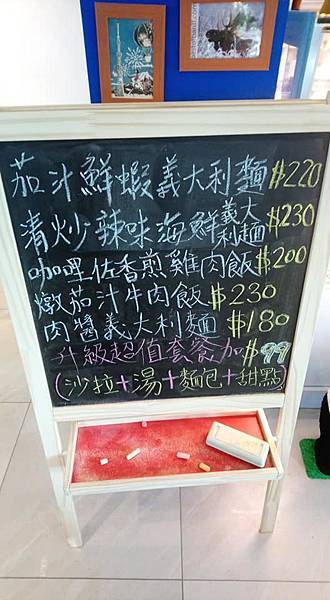 茄汁鮮蝦義大利麵$220
清炒辣味海鮮義大利麵$230
咖哩佐香煎雞肉飯$200
燉茄汁牛肉飯$230
肉醬義大利麵 $180
升級超值套餐加$99
(沙拉+湯+麵包+甜點)